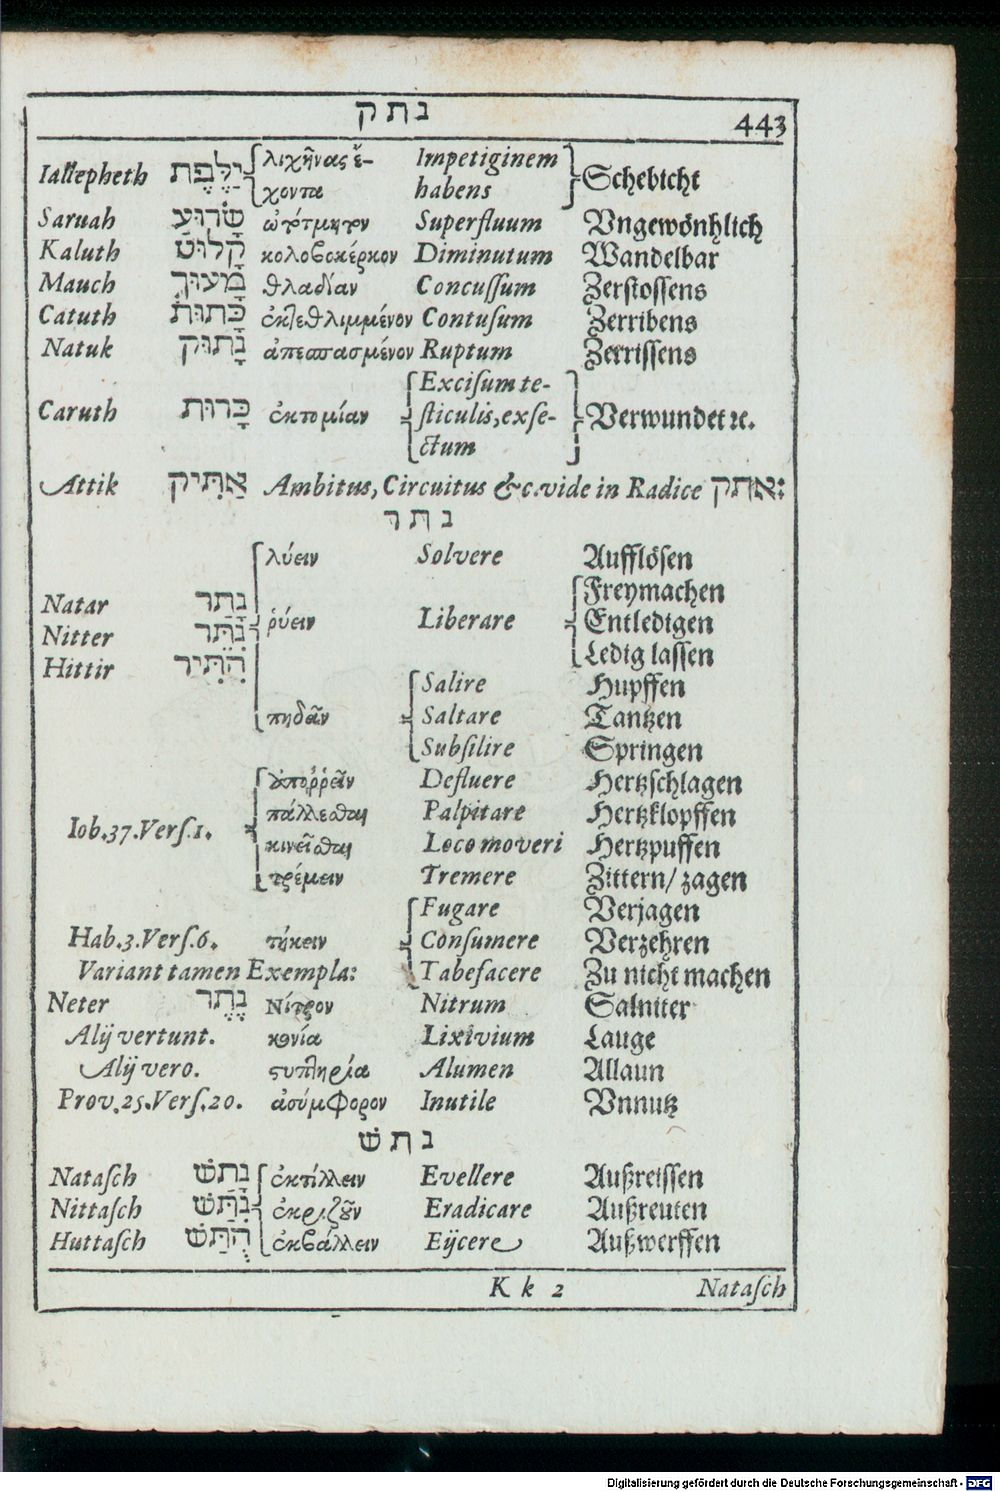 נתק
443
Iallepheth יַלֶּפֶת λιχῆνας ἔ- Impetiginem
χοντα habens Schebicht
Saruah שָׂרוּעַ ὠτότμητον Superfluum Vngewönhlich
Kaluth קָלוּט κολοβοκέρκον Diminutum Wandelbar
Mauch מָעוּךְ θλαδίαν Concuſſum Zerſtoſſens
Catuth כָּתוּת ἐκτεθλιμμένον Contuſum Zerribens
Natuk נָתוּק ἀπεσπασμένον Ruptum Zerriſſens
Exciſum te-
Caruth כָּרוּת ἐκτομίαν ſticulis, exſe- Verwundet ꝛc.
ctum
Attik אַתִּיק Ambitus, Circuitus &c. vide in Radice אתק:
נתר
λύειν Solvere Aufflöſen
Freymachen
Natar נָתַר
ῥύειν Liberare Entledigen
Nitter נִתֵּר
Ledig laſſen
Hittir הִתִּיר
Salire Hupffen
πηδᾶν Saltare Tantzen
Subſilire Springen
ἀποῤῥεῖν Defluere Hertzſchlagen
πάλλεσθαι Palpitare Hertzklopffen
Iob. 37. Verſ. 1.
κινεῖσθαι Loco moveri Hertzpuffen
τρέμειν Tremere Zittern/ zagen
Fugare Verjagen
Hab. 3. Verſ. 6. τήκειν Conſumere Verzehren
Variant tamen Exempla: Tabefacere Zu nicht machen
Neter נֶתֶר Νίτρον Nitrum Salniter
Alij vertunt. κονία Lixivium Lauge
Alij vero. ϛυπτηρία Alumen Allaun
Prov. 25. Verſ. 20. ἀσύμφορον Inutile Vnnutz
נתש
Nataſch נָתַשׁ ἐκτίλλειν Evellere Außreiſſen
Nittaſch נִתַּשׁ ἐκριζοῦν Eradicare Außreuten
Huttaſch הֻתַּשׁ ἐκβάλλειν Eijcere Außwerffen
K k 2 Nataſch
Digitalisierung gefördert durch die Deutsche Forschungsgemeinschaft - DFG